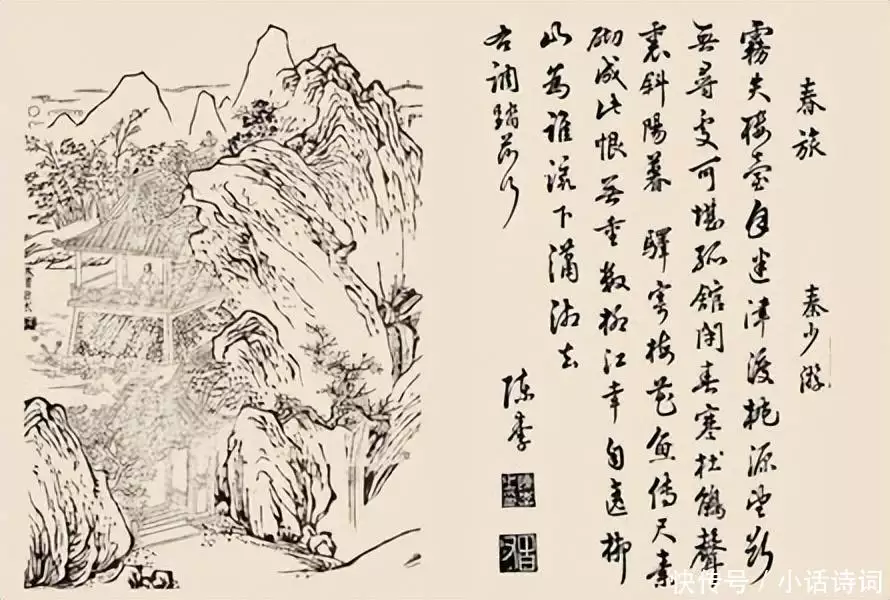 春旅 秦少游
霧失樓臺月迷津渡桃源望斷
無尋處可堪孤館閉春寒杜鵑聲
裏斜陽暮 驛寄梅花魚傳尺素
砌成此恨無重數郴江幸自遶郴
山為誰流下瀟湘去
右調踏莎行
陳
快传号 / 小话诗词